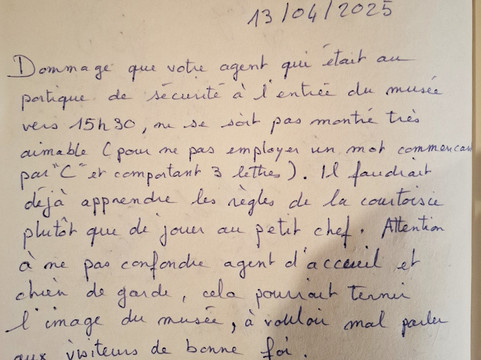 13/04/2025
Dommage que votre agent qui était au
portique de sécurité à l'entrée du musée
vers 15h30, ne se soit pas montré très
aimable (pour ne pas employer un mot commençan
par "C" et comportant 3 lettres). Il faudrait
déjà apprendre les règles de la courtoisie
plutôt que de jouer au petit chef. Attention
à ne pas confondre agent d'accueil et
chien de garde, cela pourrait ternir
l'image du musée, à vouloir mal parler
aux visiteurs de bonne foi.